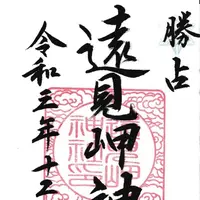 勝占
遠見岬神
令和三年十二